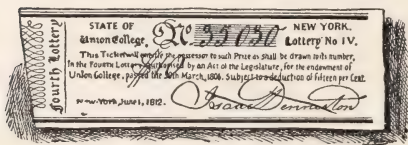 Fourth Lottery
STATE OF NEW YORK.
Union College. No 35030 Lottery No IV.
This Ticket will entitle the possessor to such Prize as shall be drawn to its number,
in the Fourth Lottery authorised by an Act of the Legislature, for the endowment of
Union College, passed the 30th March, 1805. Subject to a deduction of fifteen per Cent.
New-York, June 1, 1812. Isaac Denniston